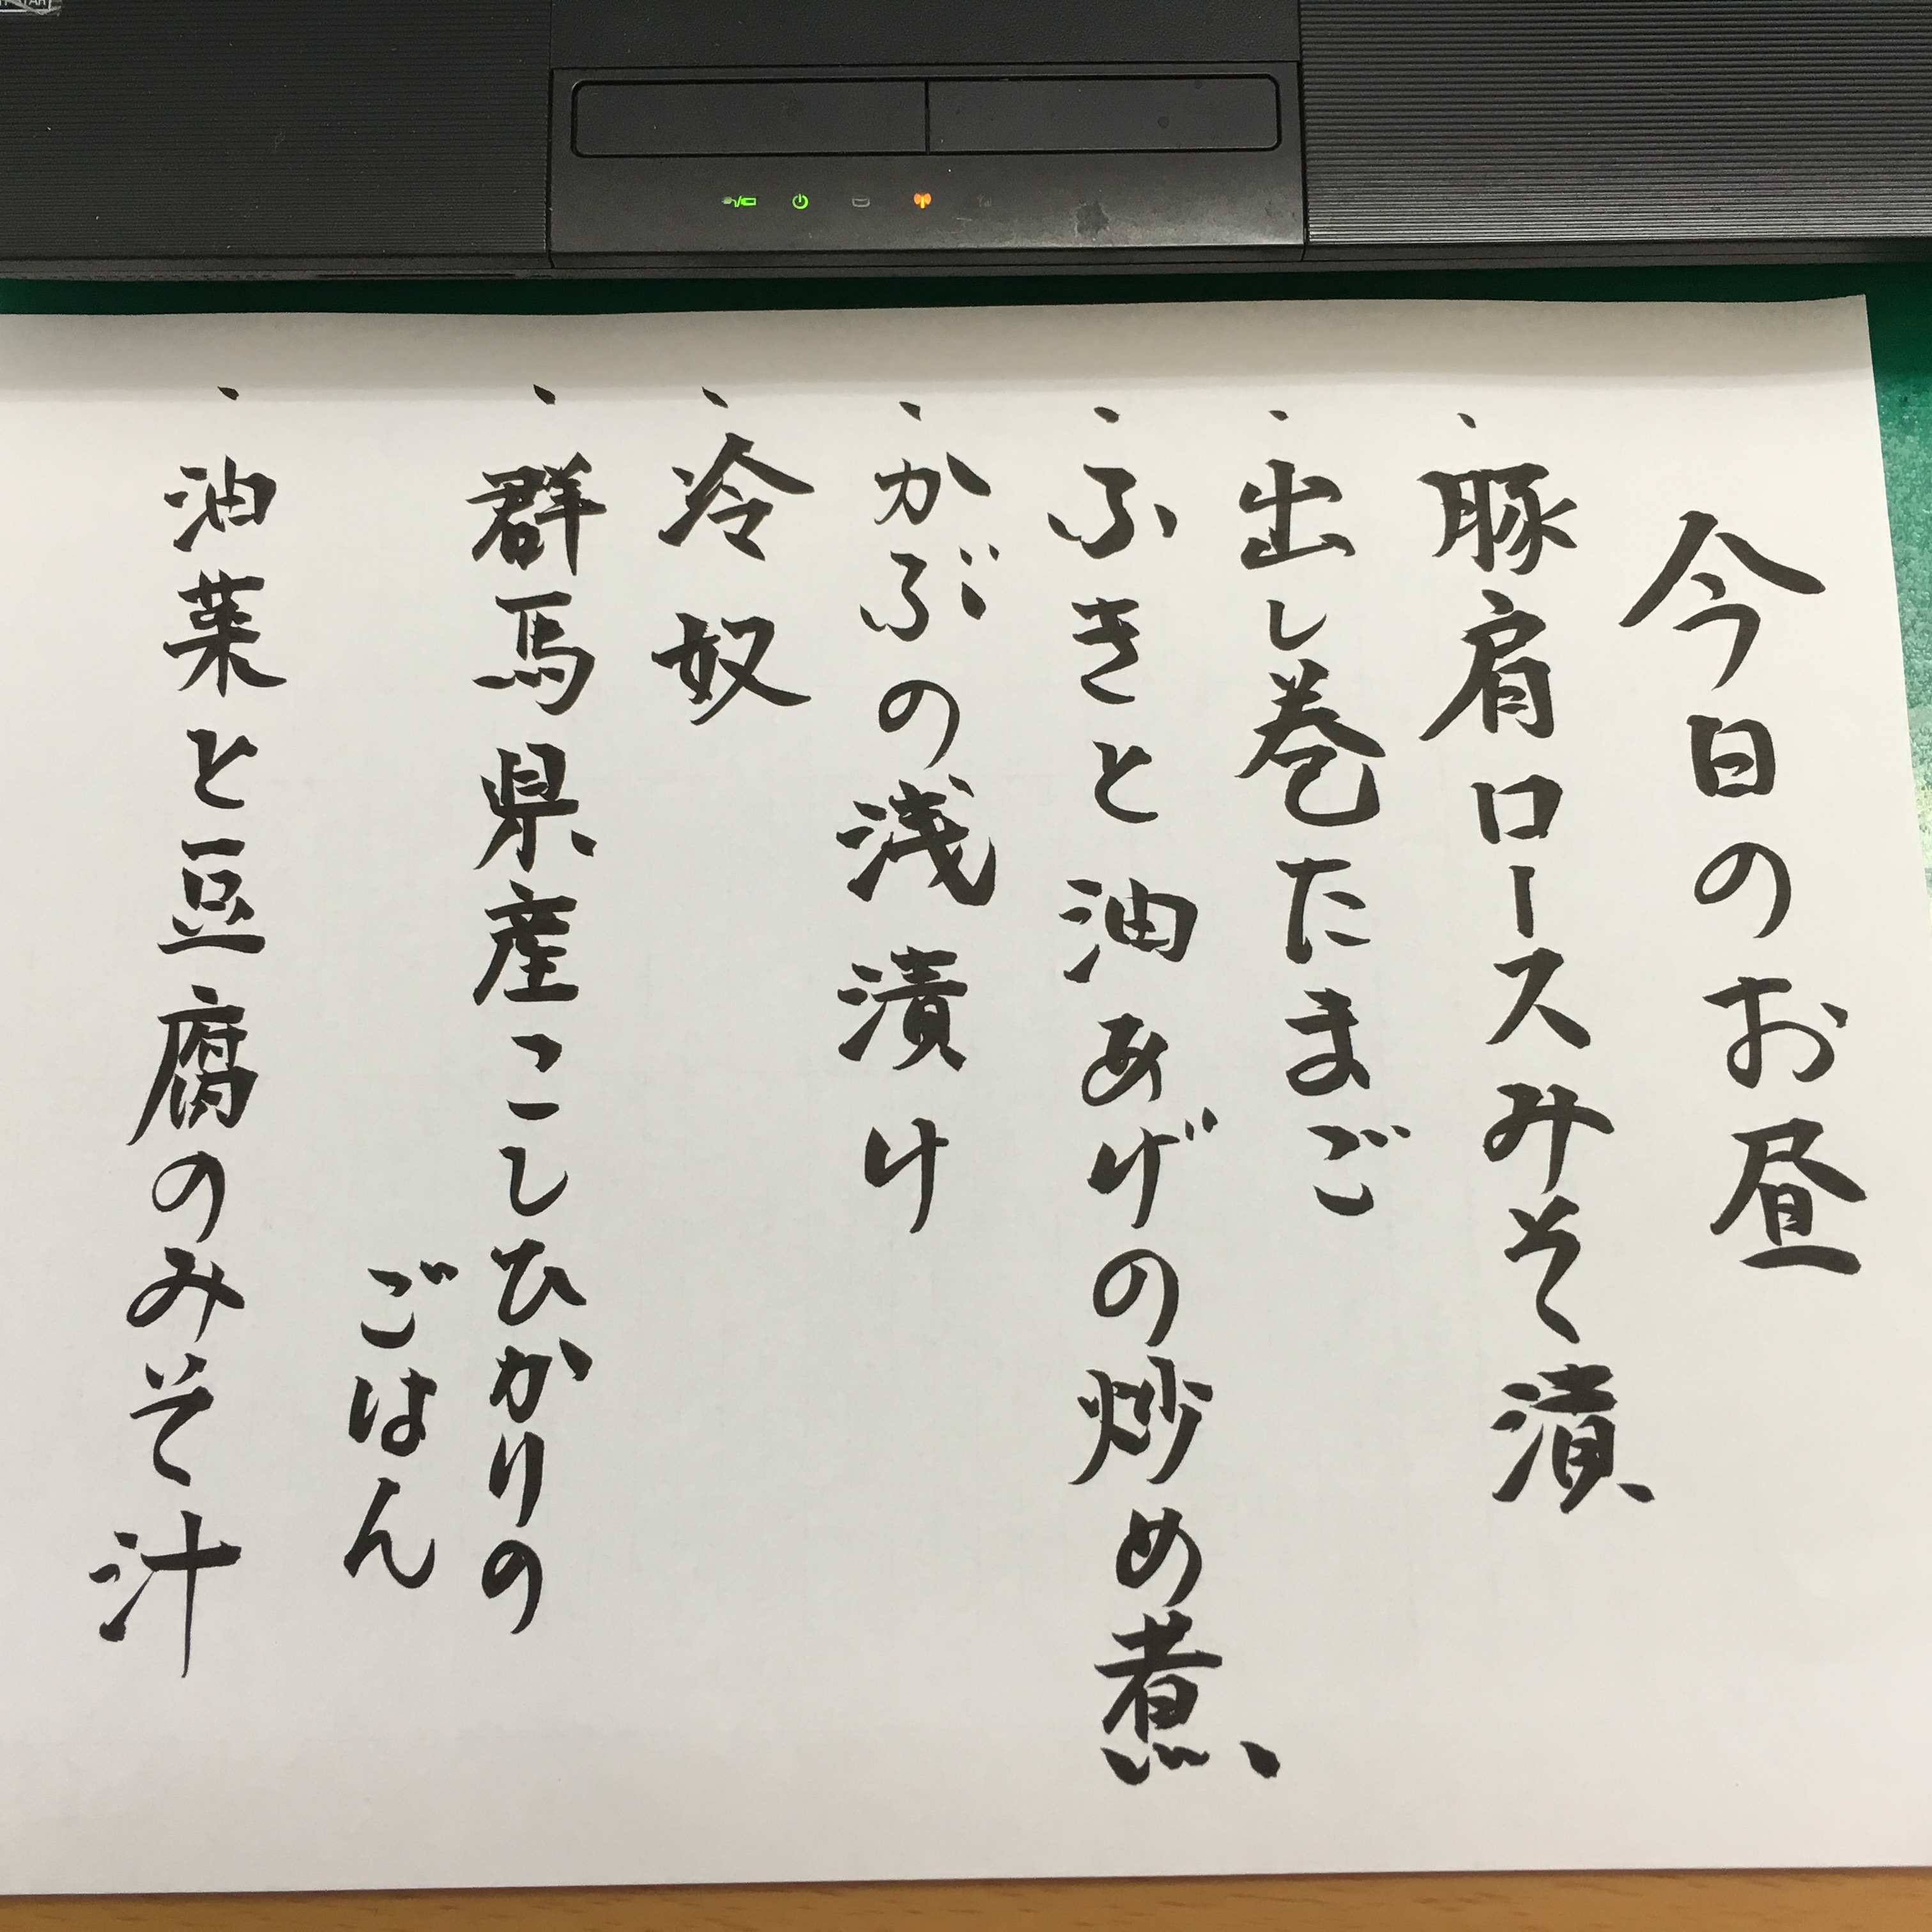 今日のお昼
・豚肩ロースみそ漬
・出し巻たまご
・ふきと油あげの炒め煮
・かぶの浅漬け
・冷奴
・群馬県産こしひかりの
ごはん
・油菜と豆腐のみそ汁